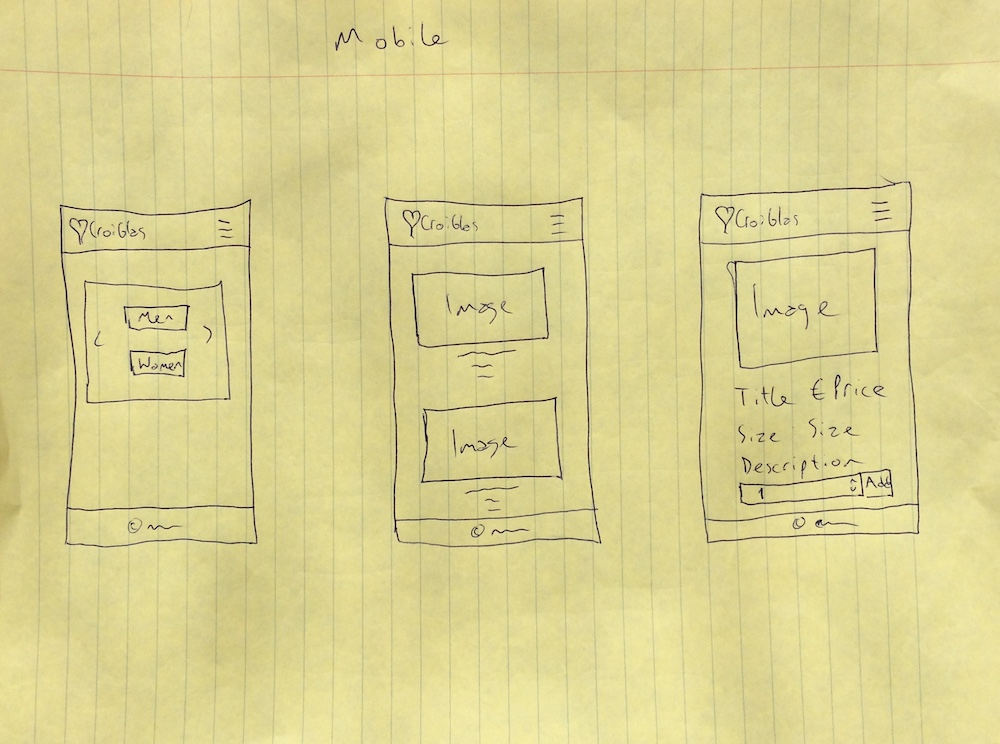 Mobile
CroiGlas
Men
Women
©
CroiGlas
Image
Image
©
CroiGlas
Image
Title €Price
Size Size
Description
1 Add
©